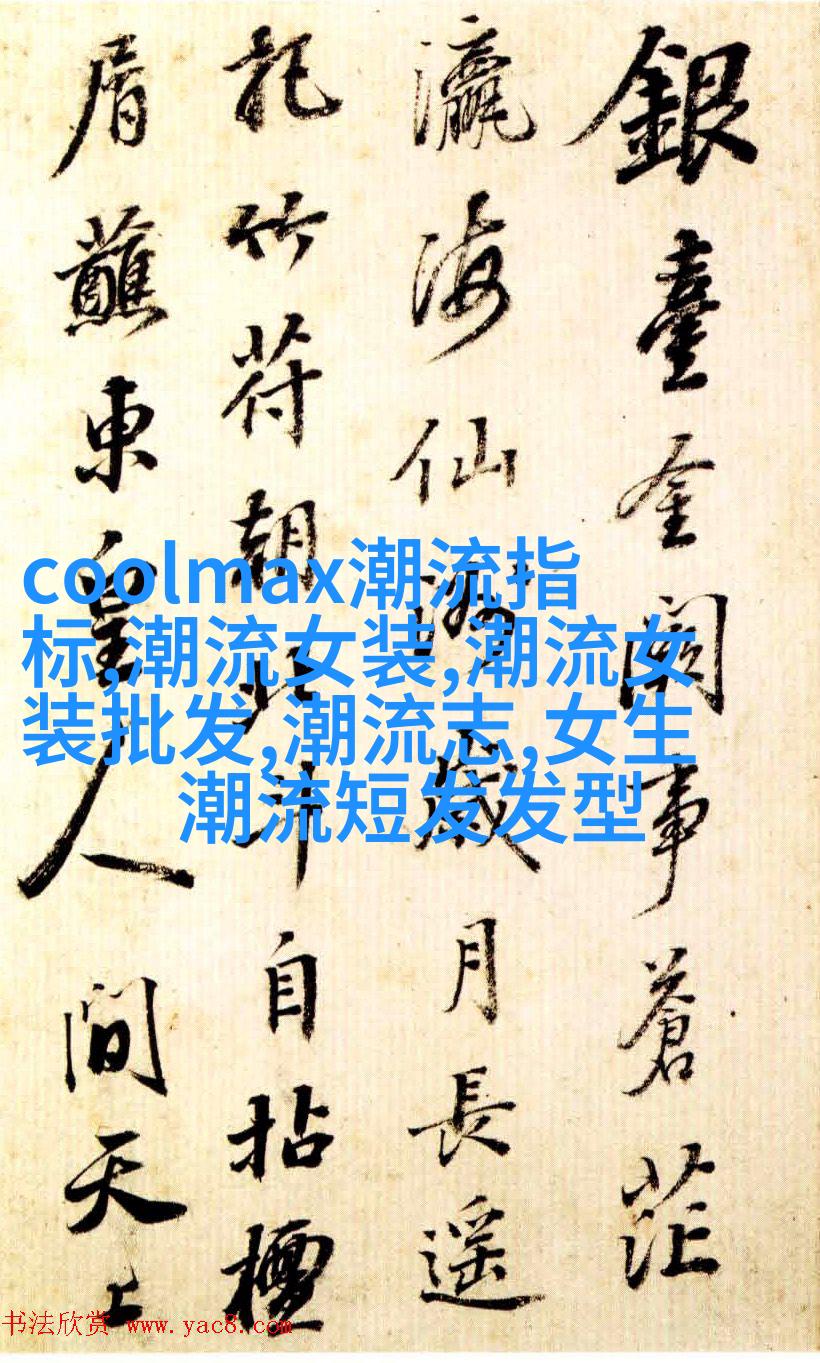 銀臺金闕事蒼茫
瀛海仙歲月長遥
記竹苻朝北斗自拈檀
屑蘸東皇人間天上
coolmax潮流指
标,潮流女装,潮流女
装批发,潮流志,女生
潮流短发发型
书法欣赏 www.yac8.com